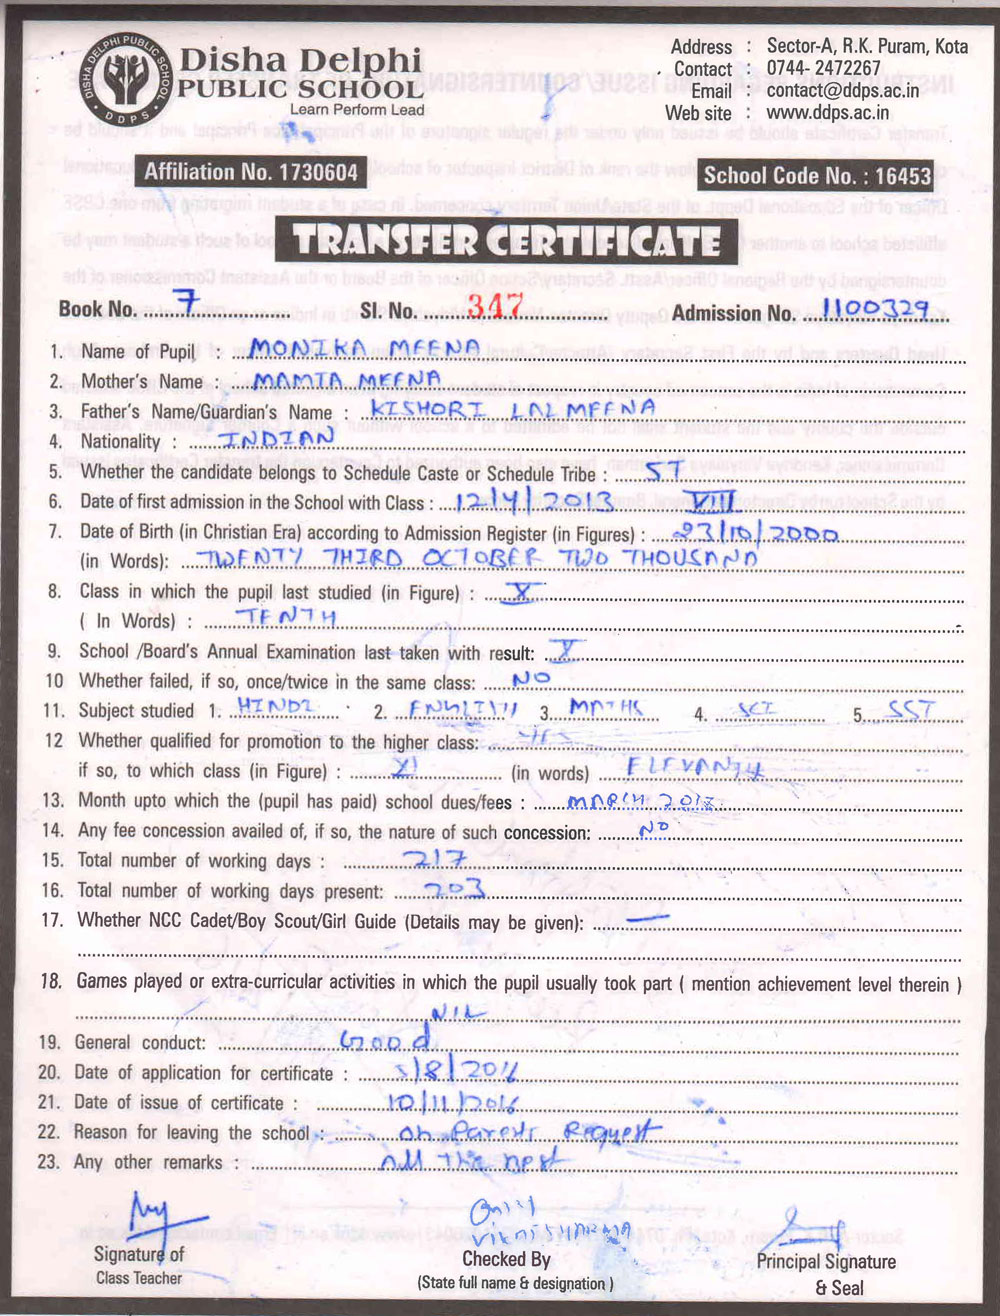 DISHA DELPHI PUBLIC SCHOOL
DDPS
Disha Delphi
PUBLIC SCHOOL
Learn Perform Lead
Address : Sector-A, R.K. Puram, Kota
Contact : 0744- 2472267
Email : contact@ddps.ac.in
Web site : www.ddps.ac.in
Affiliation No. 1730604
School Code No. : 16453
TRANSFER CERTIFICATE
Book No. 7 Sl. No. 347 Admission No. 1100329
1. Name of Pupil : MONIKA MEENA
2. Mother's Name : MAMTA MEENA
3. Father's Name/Guardian's Name : KISHORI LAL MEENA
4. Nationality : INDIAN
5. Whether the candidate belongs to Schedule Caste or Schedule Tribe : S.T
6. Date of first admission in the School with Class : 12/4/2013 VIII
7. Date of Birth (in Christian Era) according to Admission Register (in Figures) : 23/10/2000
(in Words): TWENTY THIRD OCTOBER TWO THOUSAND
8. Class in which the pupil last studied (in Figure) : X
( In Words) : TENTH
9. School /Board's Annual Examination last taken with result: X
10 Whether failed, if so, once/twice in the same class: NO
11. Subject studied 1. HINDI 2. ENGLISH 3. MATHS 4. SCI 5. SST
12 Whether qualified for promotion to the higher class: YES
if so, to which class (in Figure) : XI (in words) ELEVANTH
13. Month upto which the (pupil has paid) school dues/fees : MARCH
14. Any fee concession availed of, if so, the nature of such concession: NO
15. Total number of working days : 217
16. Total number of working days present: 203
17. Whether NCC Cadet/Boy Scout/Girl Guide (Details may be given): —
18. Games played or extra-curricular activities in which the pupil usually took part ( mention achievement level therein )
NIL
19. General conduct: Good
20. Date of application for certificate : 5/8/2016
21. Date of issue of certificate : 10/11/2016
22. Reason for leaving the school : on Parents Request
23. Any other remarks : All The best
Signature of
Class Teacher
Checked By
(State full name & designation )
Principal Signature
& Seal